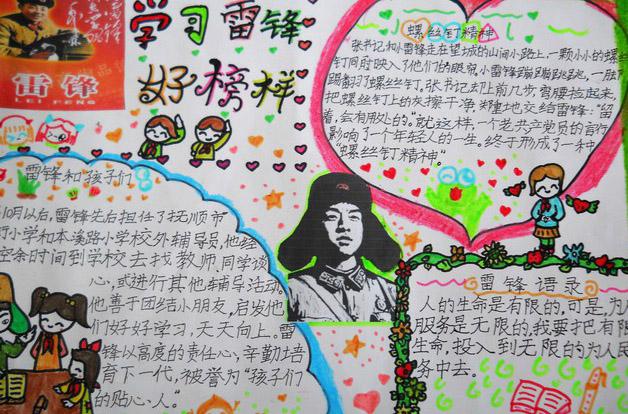 雷锋
LEI FENG
学习雷锋
好榜样
螺丝钉精神
张书记和小雷锋走在望城的山间小路上,一颗小小的螺
钉同时映入了他们的眼帘,小雷锋蹦蹦跳跳,一脚
踢翻了螺丝钉,张书记却上前几步弯腰捡起来,
把螺丝钉上的灰擦干净,郑重地交给雷锋:“留
着,会有用处的。”就这样,一个老共产党员的言行
影响了一个年轻人的一生。终于形成了一种
“螺丝钉精神”。
雷锋和孩子们
10月以后,雷锋先后担任了抚顺市
小学和本溪路小学校外辅导员,他经
空余时间到学校去找教师、同学谈
心,或进行其他辅导活动
他善于团结小朋友,启发他
们好好学习,天天向上。雷
锋以高度的责任心,辛勤培
育下一代,被誉为“孩子们
的贴心人。”
雷锋语录
人的生命是有限的,可是,为人
服务是无限的,我要把有限
生命,投入到无限的为人民
务中去。